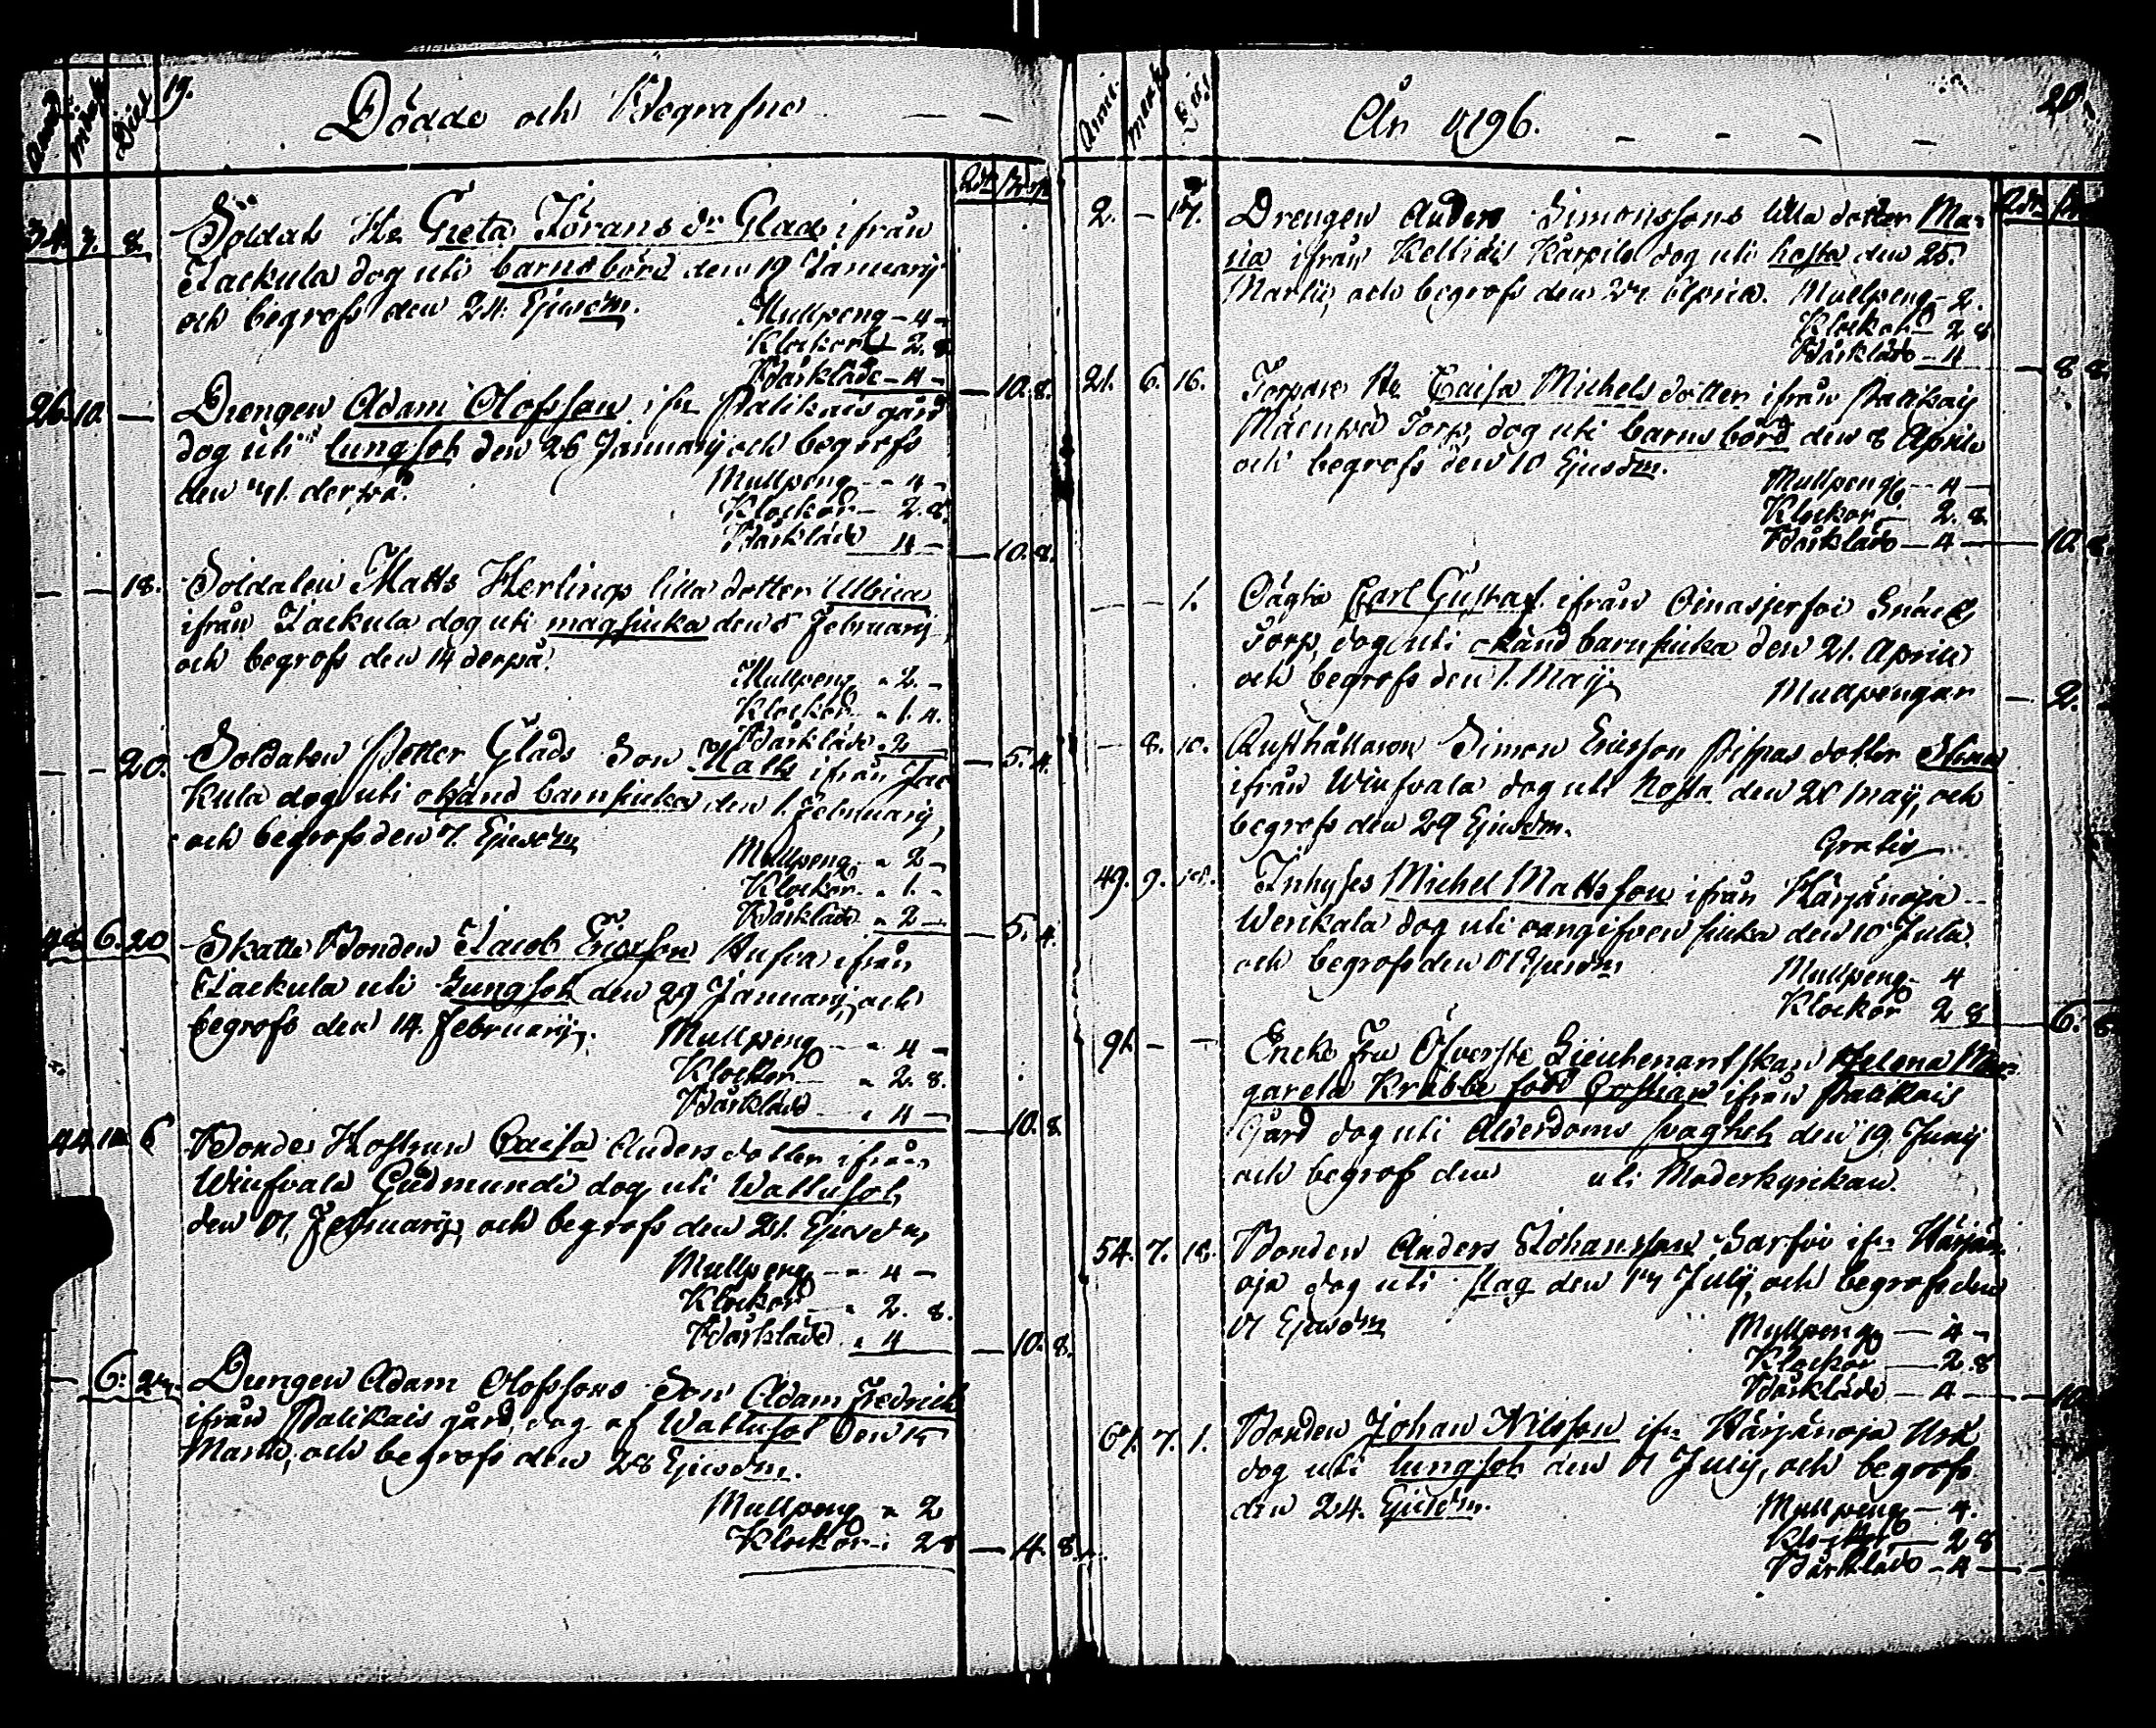 19.
Dödde och Begrafne
Rdr
34. 3. 8. Soldats H. Greta Jörans dr Glad ifrån
Jackula dog uti barnsbörd den 19 Januarij
och begrofs den 24. Ejusdm.
Mullpeng - 4 -
Klockor - 2. 8.
Bårkläde - 4 - - 10. 8.
26. 10. - Drengen Adam Olofsson ifr. Palikais gård
dog uti lungsot den 26 Januarij och begrofs
den 7. derpå.
Mullpeng - 4 -
Klockor - 2. 8.
Bårkläde 4 - - 10. 8.
- - 18. Soldaten Matts Herlings lilla dotter Ulbrica
ifrån Jackula dog uti magsiuka den 8 Februarij
och begrofs den 14 derpå.
Mullpeng 2. -
Klockor 1. 4.
Bårkläde 2 - - 5. 4.
- - 20. Soldaten Petter Glads Son Matts ifrån Jac
kula dog uti okänd barnsiuka den 1. Februarij,
och begrofs den 7. Ejusdm
Mullpeng 2 -
Klockor 1. -
Bårkläde 2 - - 5. 4.
6. 20 Skatte Bonden Jacob Ericsson ifrån
Jackula uti Lungsot den 29 Januarij, och
begrofs den 14. Februarij.
Mullpeng 4 -
Klockor 2. 8.
Bårkläde 4 - - 10. 8.
44. 10. 6 Bonde Hostrun Caisa Andersdotter ifrån
Wiufvala Gudmundi dog uti Wattusot,
den 7. Februarij, och begrofs den 21. Ejusdm
Mullpeng 4 -
Klockor 2. 8.
Bårkläde 4 - 10. 8.
- 6. 27. Drengen Adam Olofssons Son Adam Fredrich
ifrån Palikais gård, dog af Wattusot den 15
Martii, och begrofs den 28 Ejusdm.
Mullpeng 2
Klockor 2 8 - 4. 8.
20.
År 1796.
Rdr
2. - 17. Drengen Anders Simonssons lilla dotter Ma=
ria ifrån Kellidis Karpila dog uti hosta den 25.
Martii, och begrofs den 27 Aprill.
Mullpeng - 2.
Klockor 2 8
Bårkläde - 4 - 8 8
21. 6. 16. Torpare H. Caisa Michelsdotter ifrån Palikais
Torp, dog uti barnsbörd den 8 Aprill
och begrofs den 10 Ejusdm.
Mullpeng - 4 -
Klockor - 2. 8.
Bårkläde - 4 - 10. 8
- - 1. Oägta Carl Gustaf ifrån Oinasjerfvi
Torp, dog uti okänd barnsiuka den 21. Aprill
och begrofs den 1. Maij.
Mullpengar - 2.
- 8. 10. Rusthållaren Simon Ericsson Pispas dotter Stina
ifrån Wiufvala dog uti Hosta den 20 Maij, och
begrofs den 29 Ejusdm.
Gratis
49. 9. Inhyses Michel Mattsson ifrån Härjänoja
Werikala dog uti oangifven siuka den 10 Julii
och begrofs den 17 Ejusdm
Mullpeng - 4
Klockor 2 8 - 6. 8.
91. - - Encke Fru Öfverste Lieutenantskan Helena Mar
gareta Krabbe född ifrån Palikais
Gård dog uti Ålderdoms svaghet den 19 Junij
och begrof den uti Moderkyrkan.
54. 7. 18. Bonden Anders Johansson ifr. Härjän
oja dog uti slag den 14 Julij, och begrofs den
17 Ejusdm
Mullpeng - 4 -
Klockor - 2. 8
Bårkläde - 4 - 10
67. 7. 1. Bonden Johan Nilsson ifr. Härjänoja
dog uti lungsot den 17 Julij, och begrofs
den 24. Ejusdm.
Mullpeng - 4.
Klockor - 2 8
Bårkläde - 4 -